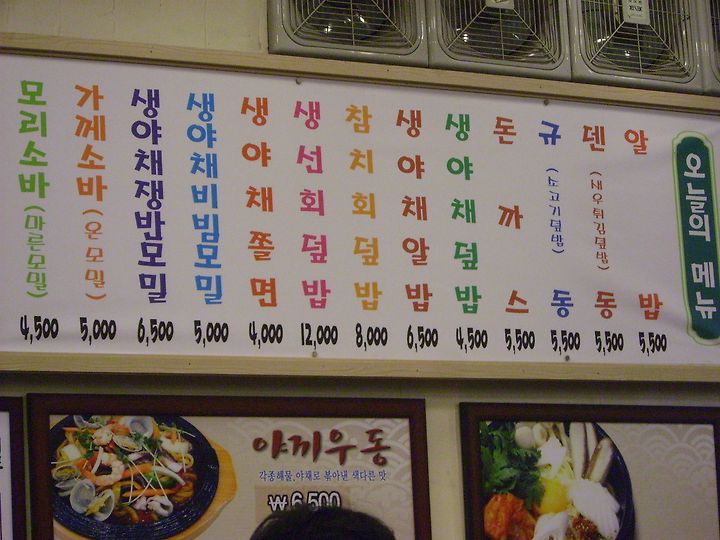 오늘의 메뉴
알밥 5,500
덴동 (새우튀김덮밥) 5,500
규동 (소고기덮밥) 5,500
돈까스 5,500
생야채덮밥 4,500
생야채알밥 6,500
참치회덮밥 8,000
생선회덮밥 12,000
생야채쫄면 4,000
생야채비빔모밀 5,000
생야채쟁반모밀 6,500
가께소바 (온모밀) 5,000
모리소바 (마른모밀) 4,500
야끼우동
각종해물,야채로 볶아낸 색다른 맛
₩6,500